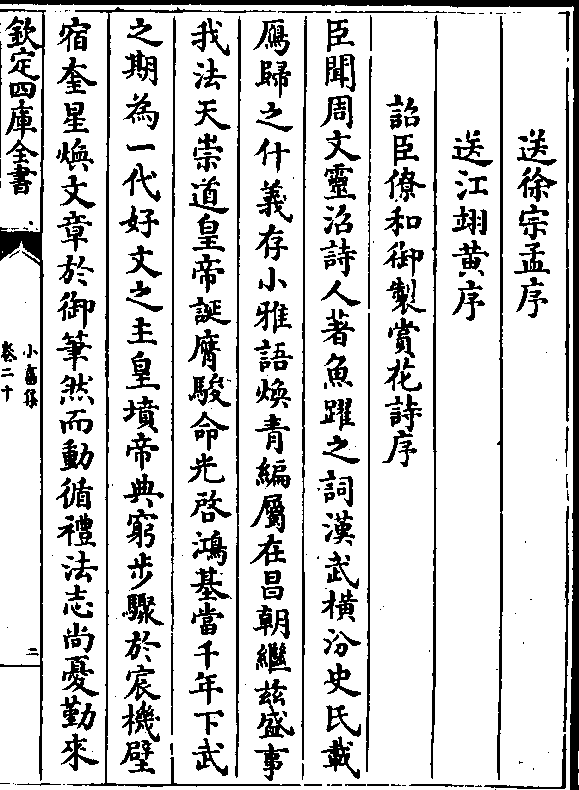 送徐宗孟序
送江翊黄序
詔臣僚和御製賞花詩序
臣聞周文靈沼詩人著魚躍之詞漢武横汾史氏載
鴈歸之什義存小雅語煥青編屬在昌朝繼兹盛事
我法天崇道皇帝誕膺駿命光啓鴻基當千年下武
之期為一代好文之主皇墳帝典窮步驟於宸機壁
宿奎星煥文章於御筆然而動循禮法志尚憂勤來
欽定四庫全書
小畜集
卷二十
二